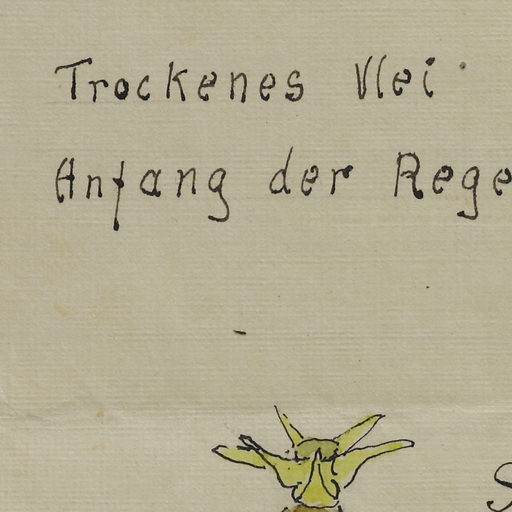 Trockenes Vlei
Anfang der Rege